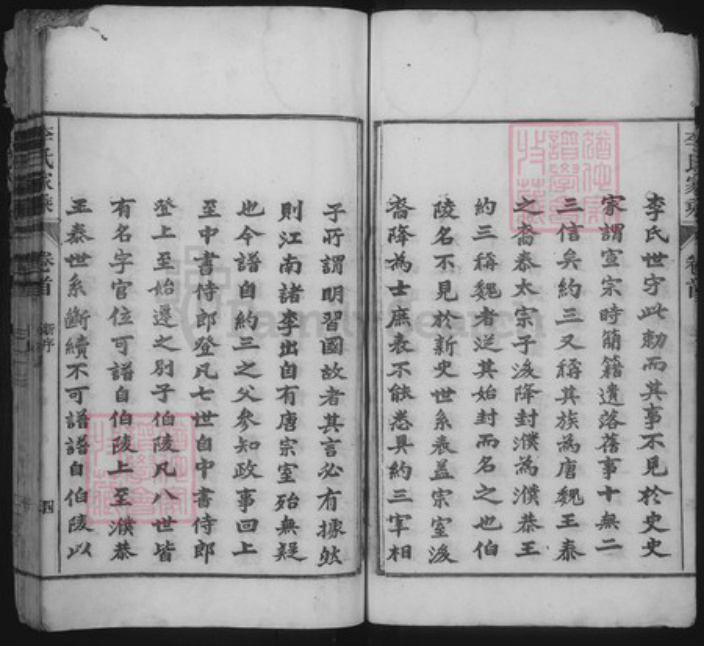 李氏世守此勅而其事不見於史史
家謂宣宗時簡籍遺落舊事十無二
三信矣約三又稱其族為唐魏王泰
之裔泰太宗子後降封濮為濮恭王
約三稱魏者送其始封而名之也伯
陵名不見於新史世系表蓋宗室後
裔降為士庶表不能悉具約三宰相
子所謂明習國故者其言必有據然
則江南諸李出自有唐宗室殆無疑
也今譜自約三之父參知政事回上
至中書侍郎登凡七世自中書侍郎
登上至始遷之別子伯陵凡八世皆
有名字官位可譜自伯陵上至濮恭
王泰世系斷續不可譜譜自伯陵以
李氏家乘
卷首
新序
四
李氏家乘
卷首
FamilySearch